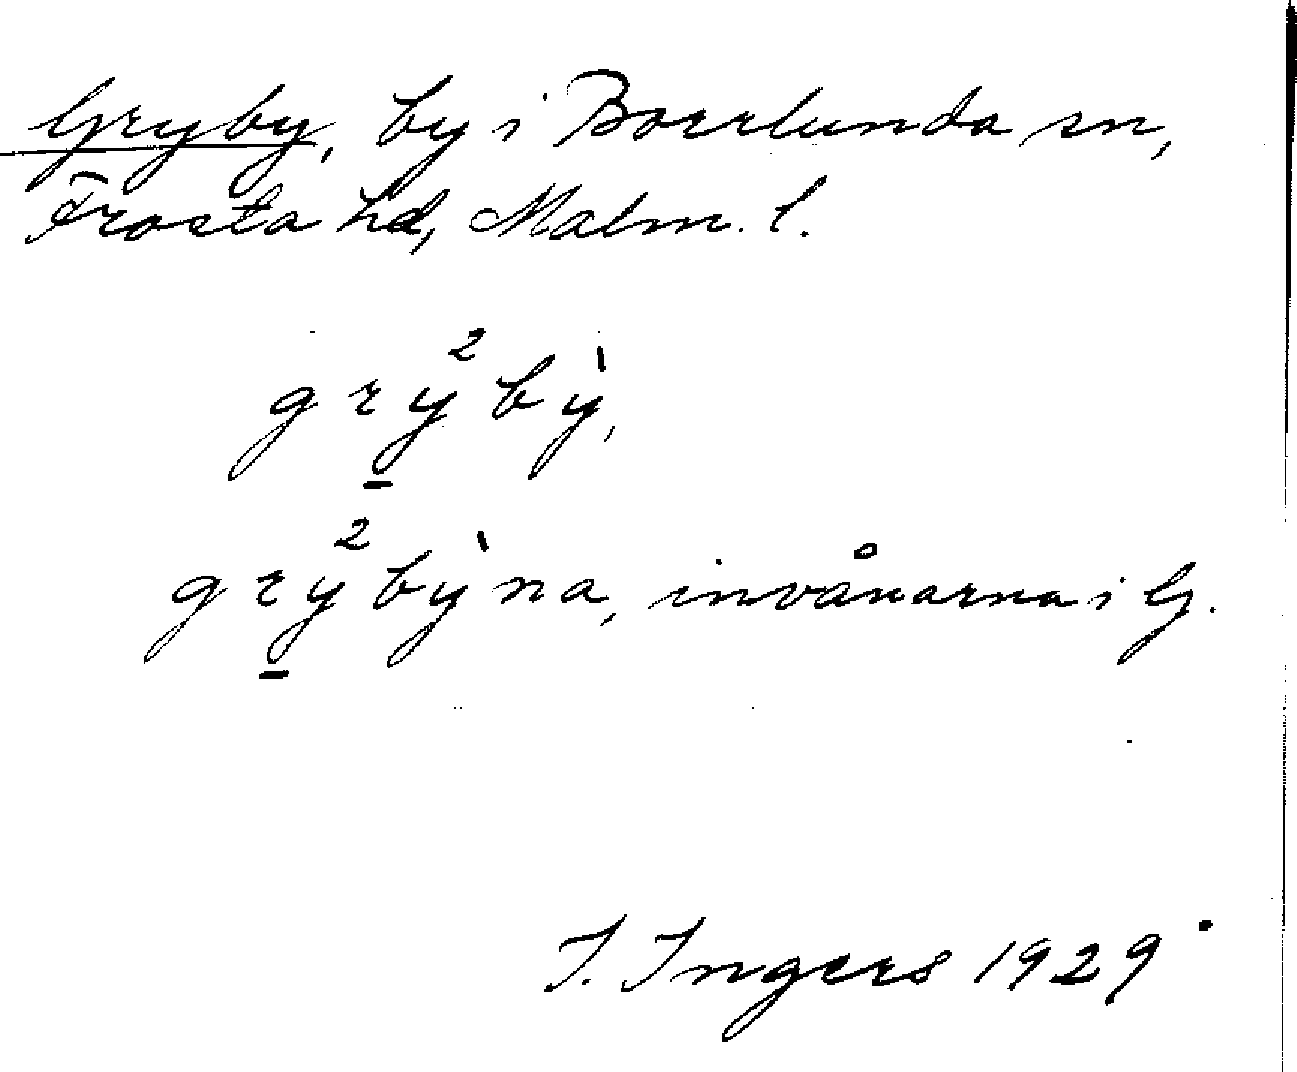 Gryby, by i Borrlunda sn,
Frosta hd, Malm. l.
gry̱²bỳ,
gry̱²bỳna, invånarna i G.
I. Ingers 1929